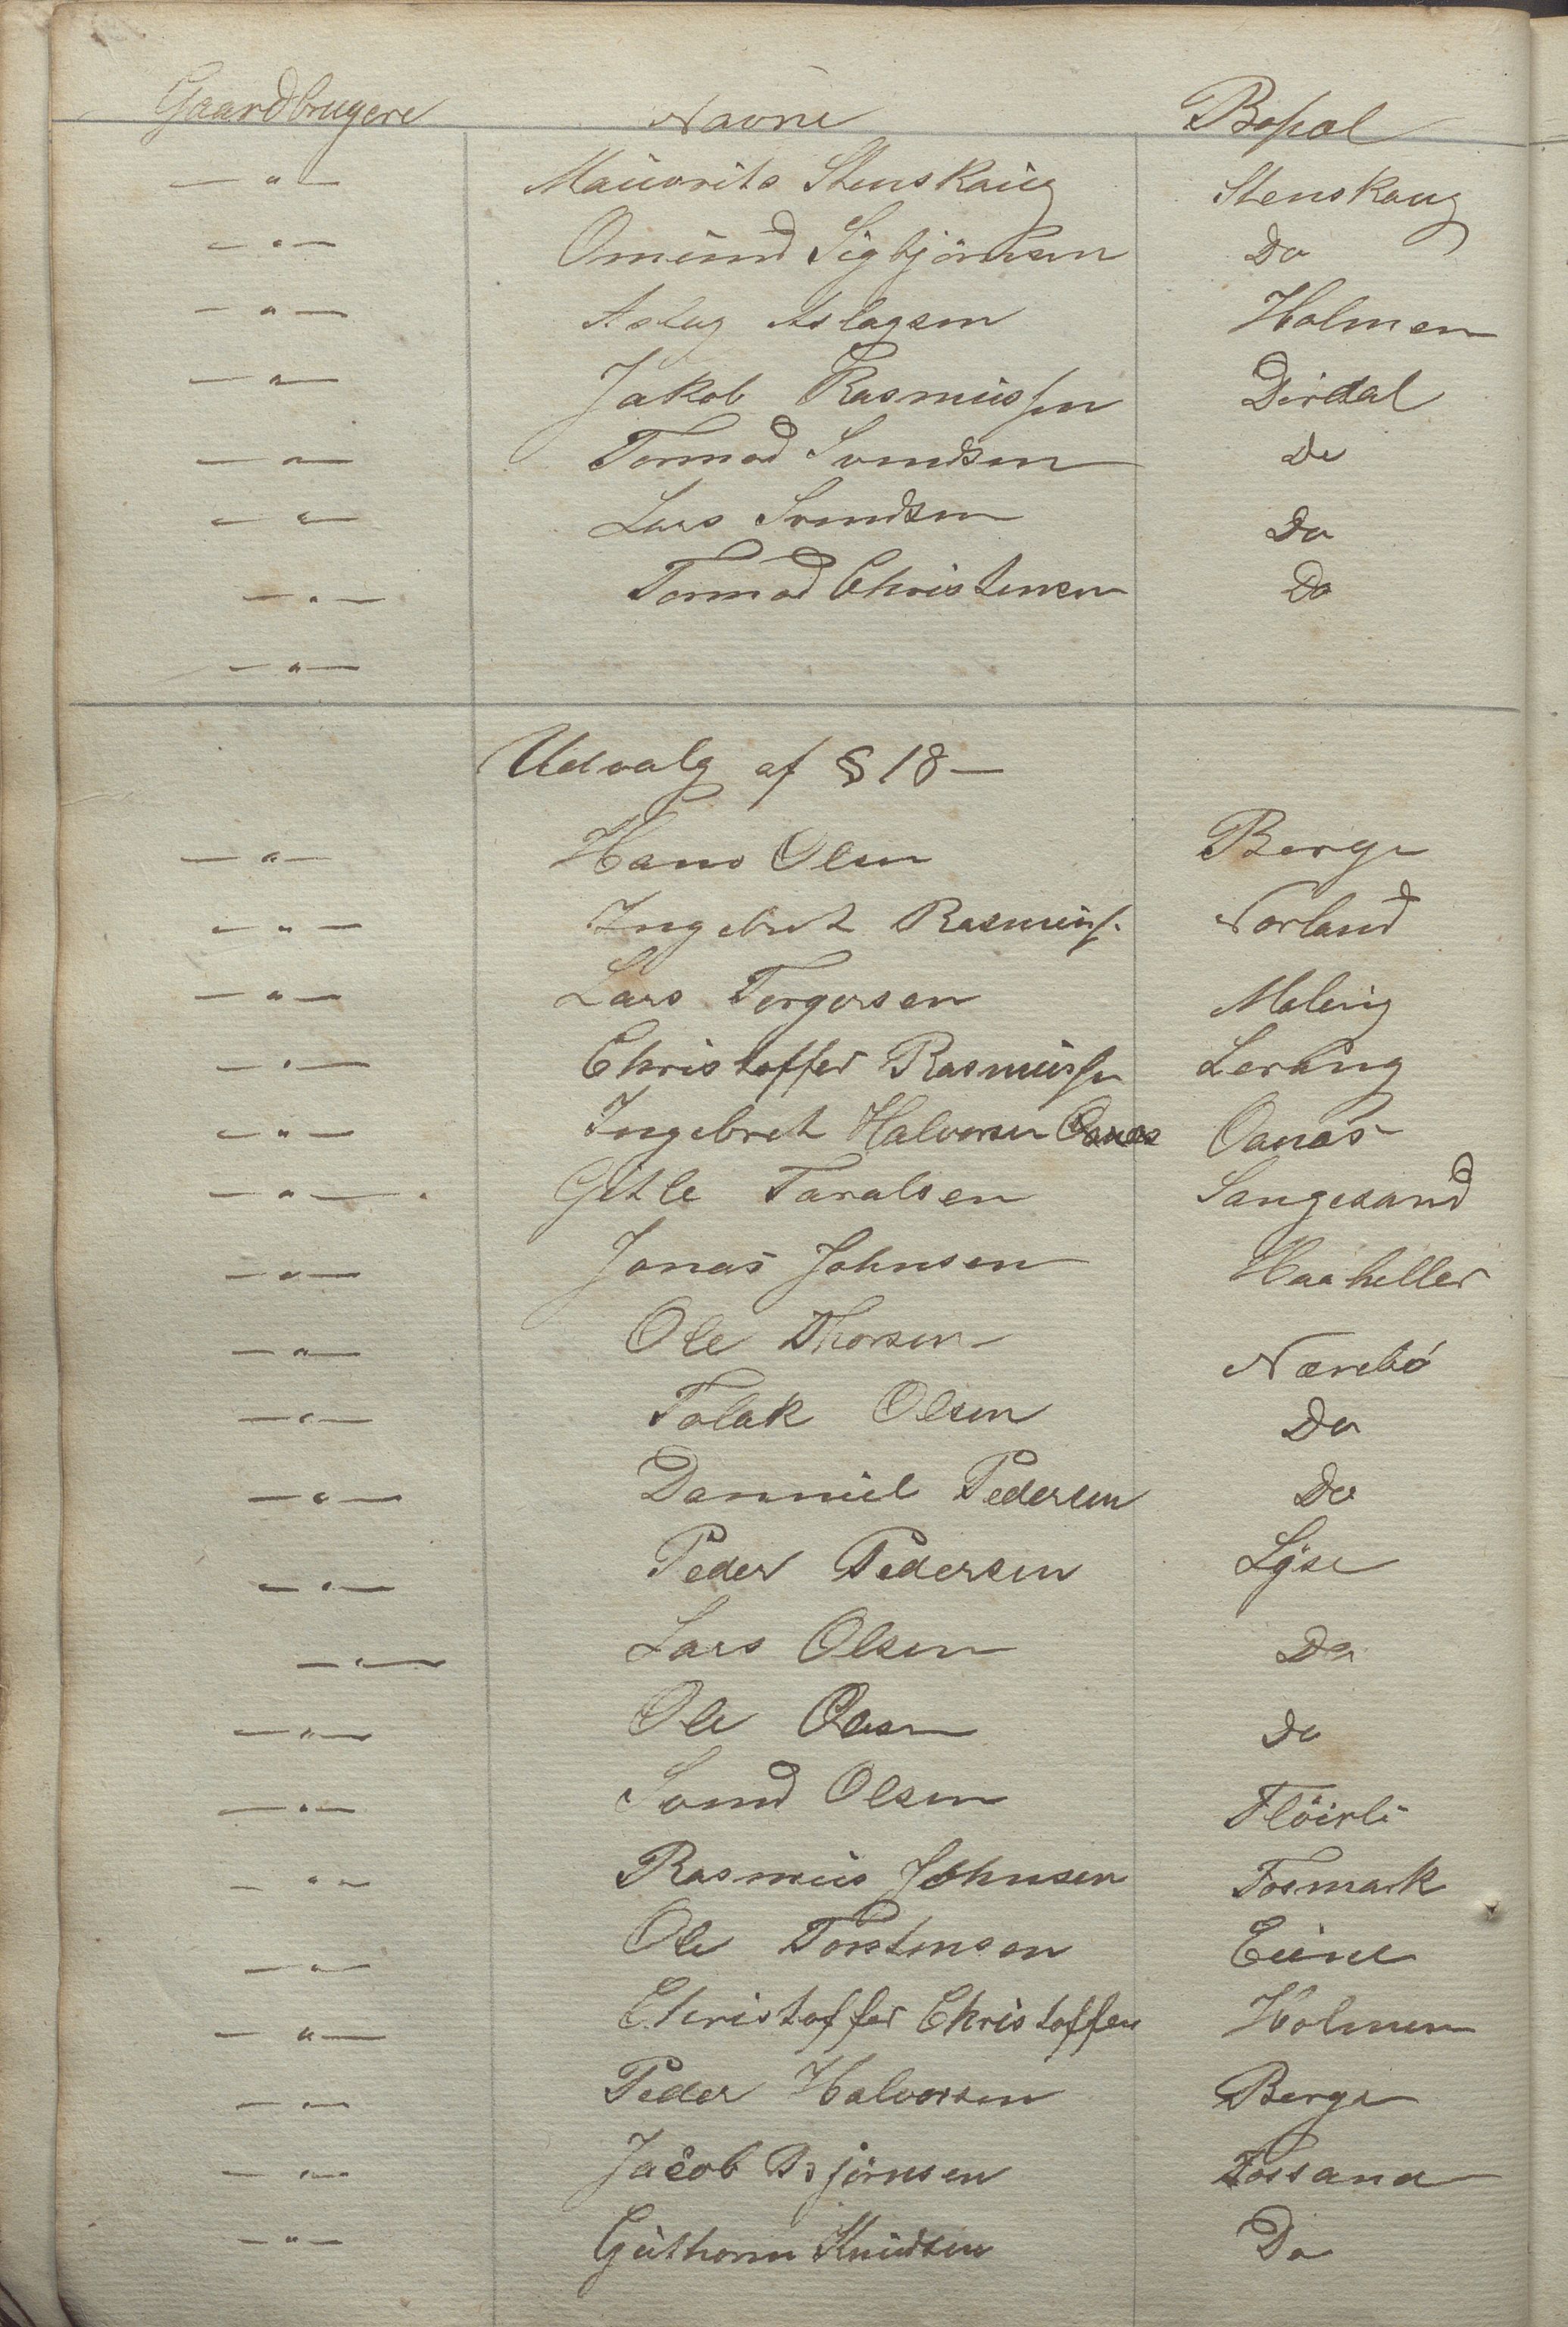 Gaardbrugere Navne Bopæl
— " — Mauorits Stenskaug Stenskaug
— " — Omund Sigbjörnsen Do
— " — Aslag Aslagsen Holmen
— " — Jakob Rasmussen Dirdal
— " — Tormod Svendsen Do
— " — Lars Svendsen Do
— " — Tormod Christensen Do
— " —
Udvalg af § 18 —
— " — Hans Olsen Berge
— " — Ingebret Rasmuss. Norland
— " — Lars Torgersen Meling
— " — Christoffer Rasmussen Lerang
— " — Ingebret Halvorsen Oanes Oanes
— " — Gitle Taralsen Sangesand
— " — Jonas Johnsen Haaheller
— " — Ole Thorsen Nærebö
— " — Tolak Olsen Do
— " — Danniel Pedersen Do
— " — Peder Pedersen Lyse
— " — Lars Olsen Do
— " — Ole Olsen Do
— " — Svend Olsen Flöirli
— " — Rasmus Johnsen Fosmark
— " — Ole Torstensen Eiene
— " — Christoffer Christoffen Holmen
— " — Peder Halvorsen Berge
— " — Jacob Bjørnsen Fossane
— " — Guthorm Knudsen Do